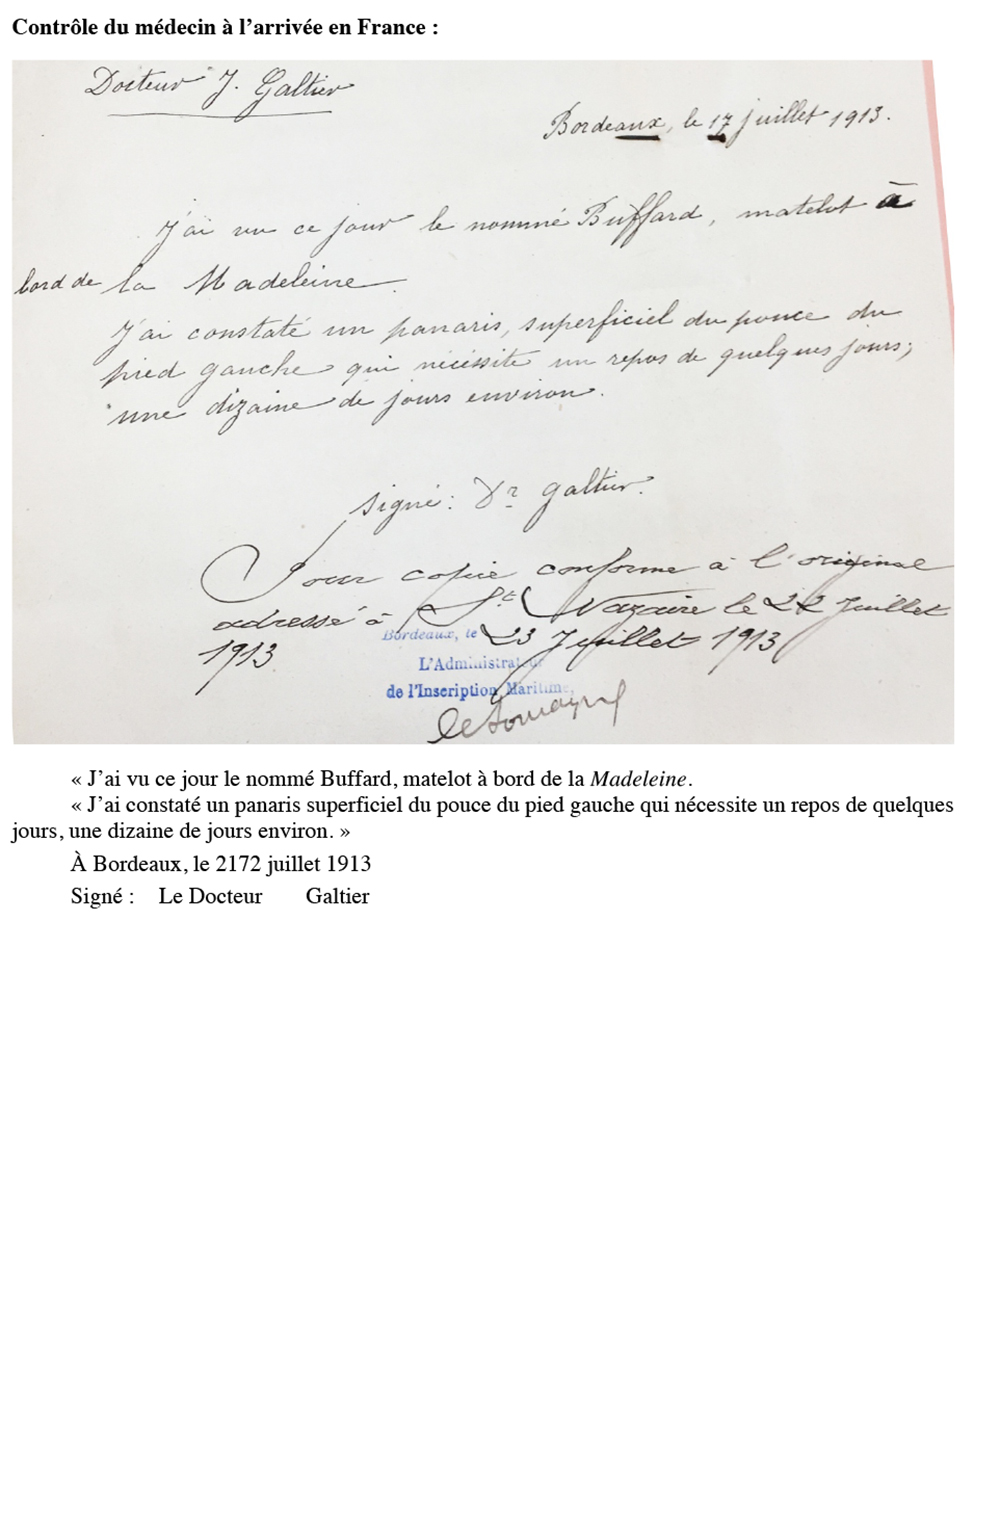 Contrôle du médecin à l’arrivée en France :
Docteur J. Galtier
Bordeaux, le 17 juillet 1913.
J'ai vu ce jour le nommé Buffard, matelot à
bord de la Madeleine.
J'ai constaté un panaris, superficiel du pouce du
pied gauche qui nécessite un repos de quelques jours;
une dizaine de jours environ.
signé: Dr Galtier.
Pour copie conforme à l'original
adressé à St Nazaire le 22 Juillet
1913
Bordeaux, le 23 Juillet 1913
L'Administrateur
de l'Inscription Maritime,
« J’ai vu ce jour le nommé Buffard, matelot à bord de la Madeleine.
« J’ai constaté un panaris superficiel du pouce du pied gauche qui nécessite un repos de quelques
jours, une dizaine de jours environ. »
À Bordeaux, le 2172 juillet 1913
Signé : Le Docteur Galtier